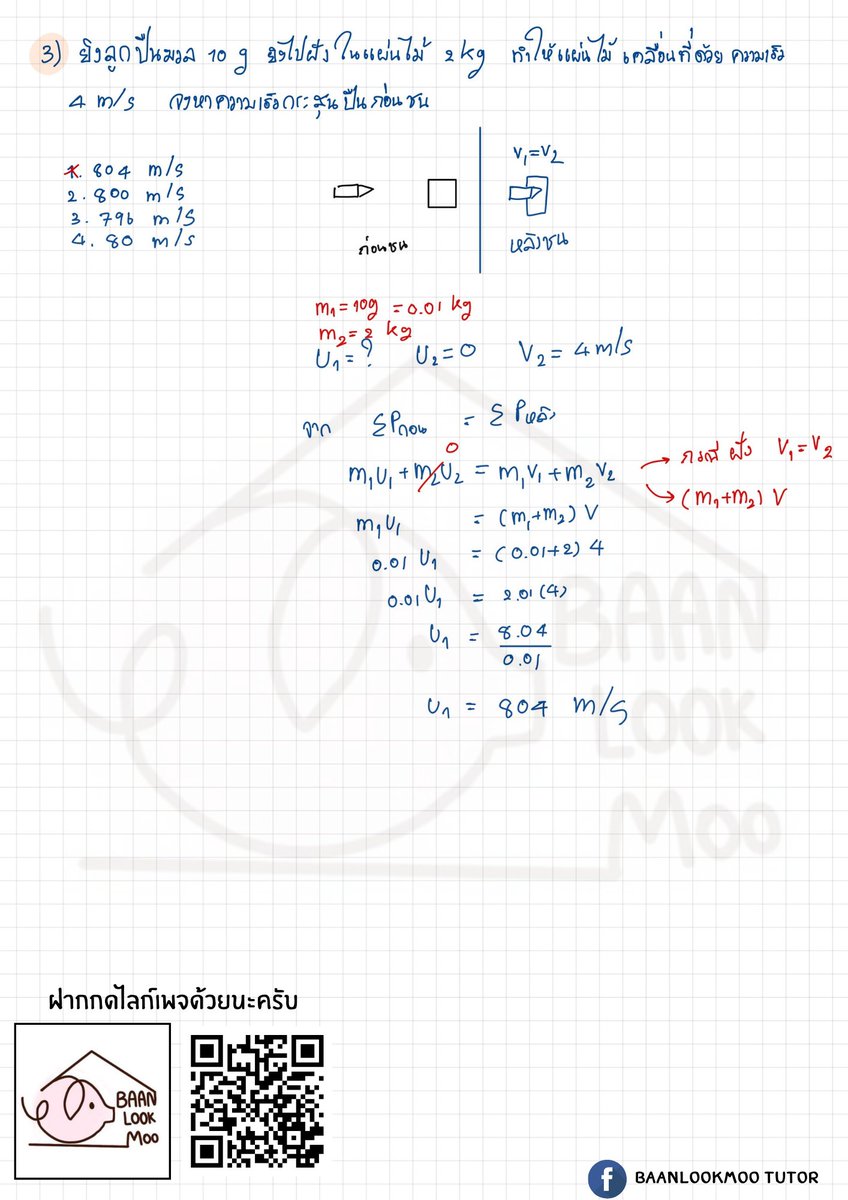 3) ยิงลูกปืนมวล 10 g ยิงไปฝังในแผ่นไม้ 2 kg ทำให้แผ่นไม้เคลื่อนที่ด้วยความเร็ว
4 m/s จงหาความเร็วกระสุนปืนก่อนชน
1. 804 m/s
2. 800 m/s
3. 796 m/s
4. 80 m/s
ก่อนชน
v₁=v₂
หลังชน
m₁=10g = 0.01 kg
m₂= 2 kg
U₁= ? U₂=0 V₂= 4 m/s
จาก ΣPก่อน = ΣPหลัง
0
m₁U₁ + m₂U₂ = m₁V₁ + m₂V₂ → กรณี ฝัง V₁=V₂
→ (m₁+m₂) V
m₁U₁ = (m₁+m₂) V
0.01 U₁ = (0.01+2) 4
0.01 U₁ = 2.01 (4)
U₁ = 8.04
0.01
U₁ = 804 m/s
BAAN
LOOK
MOO
ฝากกดไลก์เพจด้วยนะครับ
BAAN
LOOK
MOO
f BAANLOOKMOO TUTOR